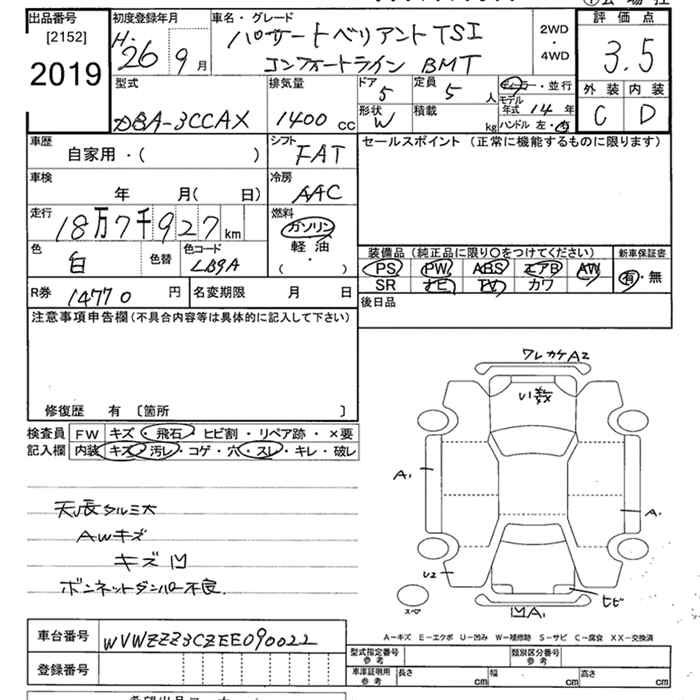 出品番号
[2152]
2019
初度登録年月
H.26 9月
車名・グレード
パサートベリアント TSI
コンフォートライン BMT
2WD
・
4WD
評価点
3.5
外装 内装
C D
型式
DBA-3CCAX
排気量
1400 CC
ドア
5
定員
5 人
ディーラー・並行
モデル年式 14 年
ハンドル 左・右
形状
W
積載
kg
車歴
自家用・( )
シフト
FAT
セールスポイント (正常に機能するものに限ります)
車検
年 月( 日)
冷房
AAC
走行
18万7千927 km
燃料
ガソリン
軽油
( ・ )
色
白
色替
色コード
LB9A
装備品 (純正品に限り〇をつけてください)
新車保証書
PS PW ABS エアB AW
SR ナビ TV カワ
有・無
R券 14770 円
名変期限 月 日
後日品
注意事項申告欄 (不具合内容等は具体的に記入して下さい)
修復歴 有 〔箇所 〕
検査員
記入欄
FW キズ・飛石・ヒビ割・リペア跡・×要
内装 キズ・汚レ・コゲ・穴・スレ・キレ・破レ
天張タルミ大
AWキズ
キズ凹
ボンネットダンパー不良
ワレカケA2
A1
A1
U2
ヒビ
スペア
凹A1
A-キズ E-エクボ U-凹み W-補修跡 S-サビ C-腐食 XX-交換済
車台番号 WVWZZZ3CZEE090022
登録番号
型式指定番号
参考
類別区分番号
参考
車庫証明用
参考
長さ cm
幅 cm
高さ cm